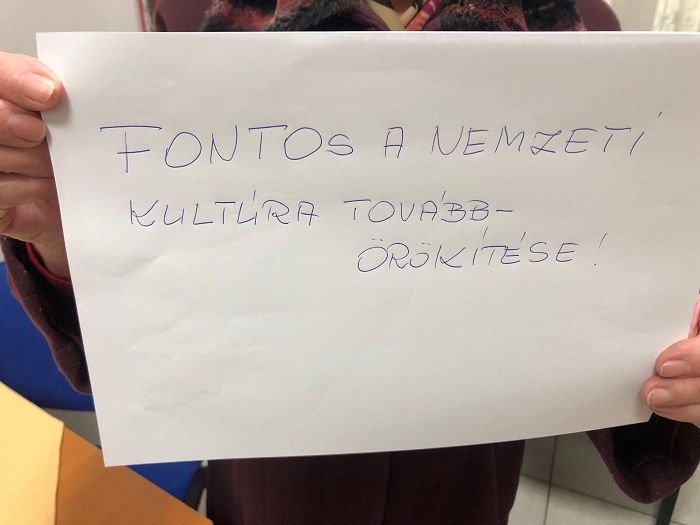 FONTOS A NEMZETI
KULTÚRA TOVÁBB-
ÖRÖKÍTÉSE!